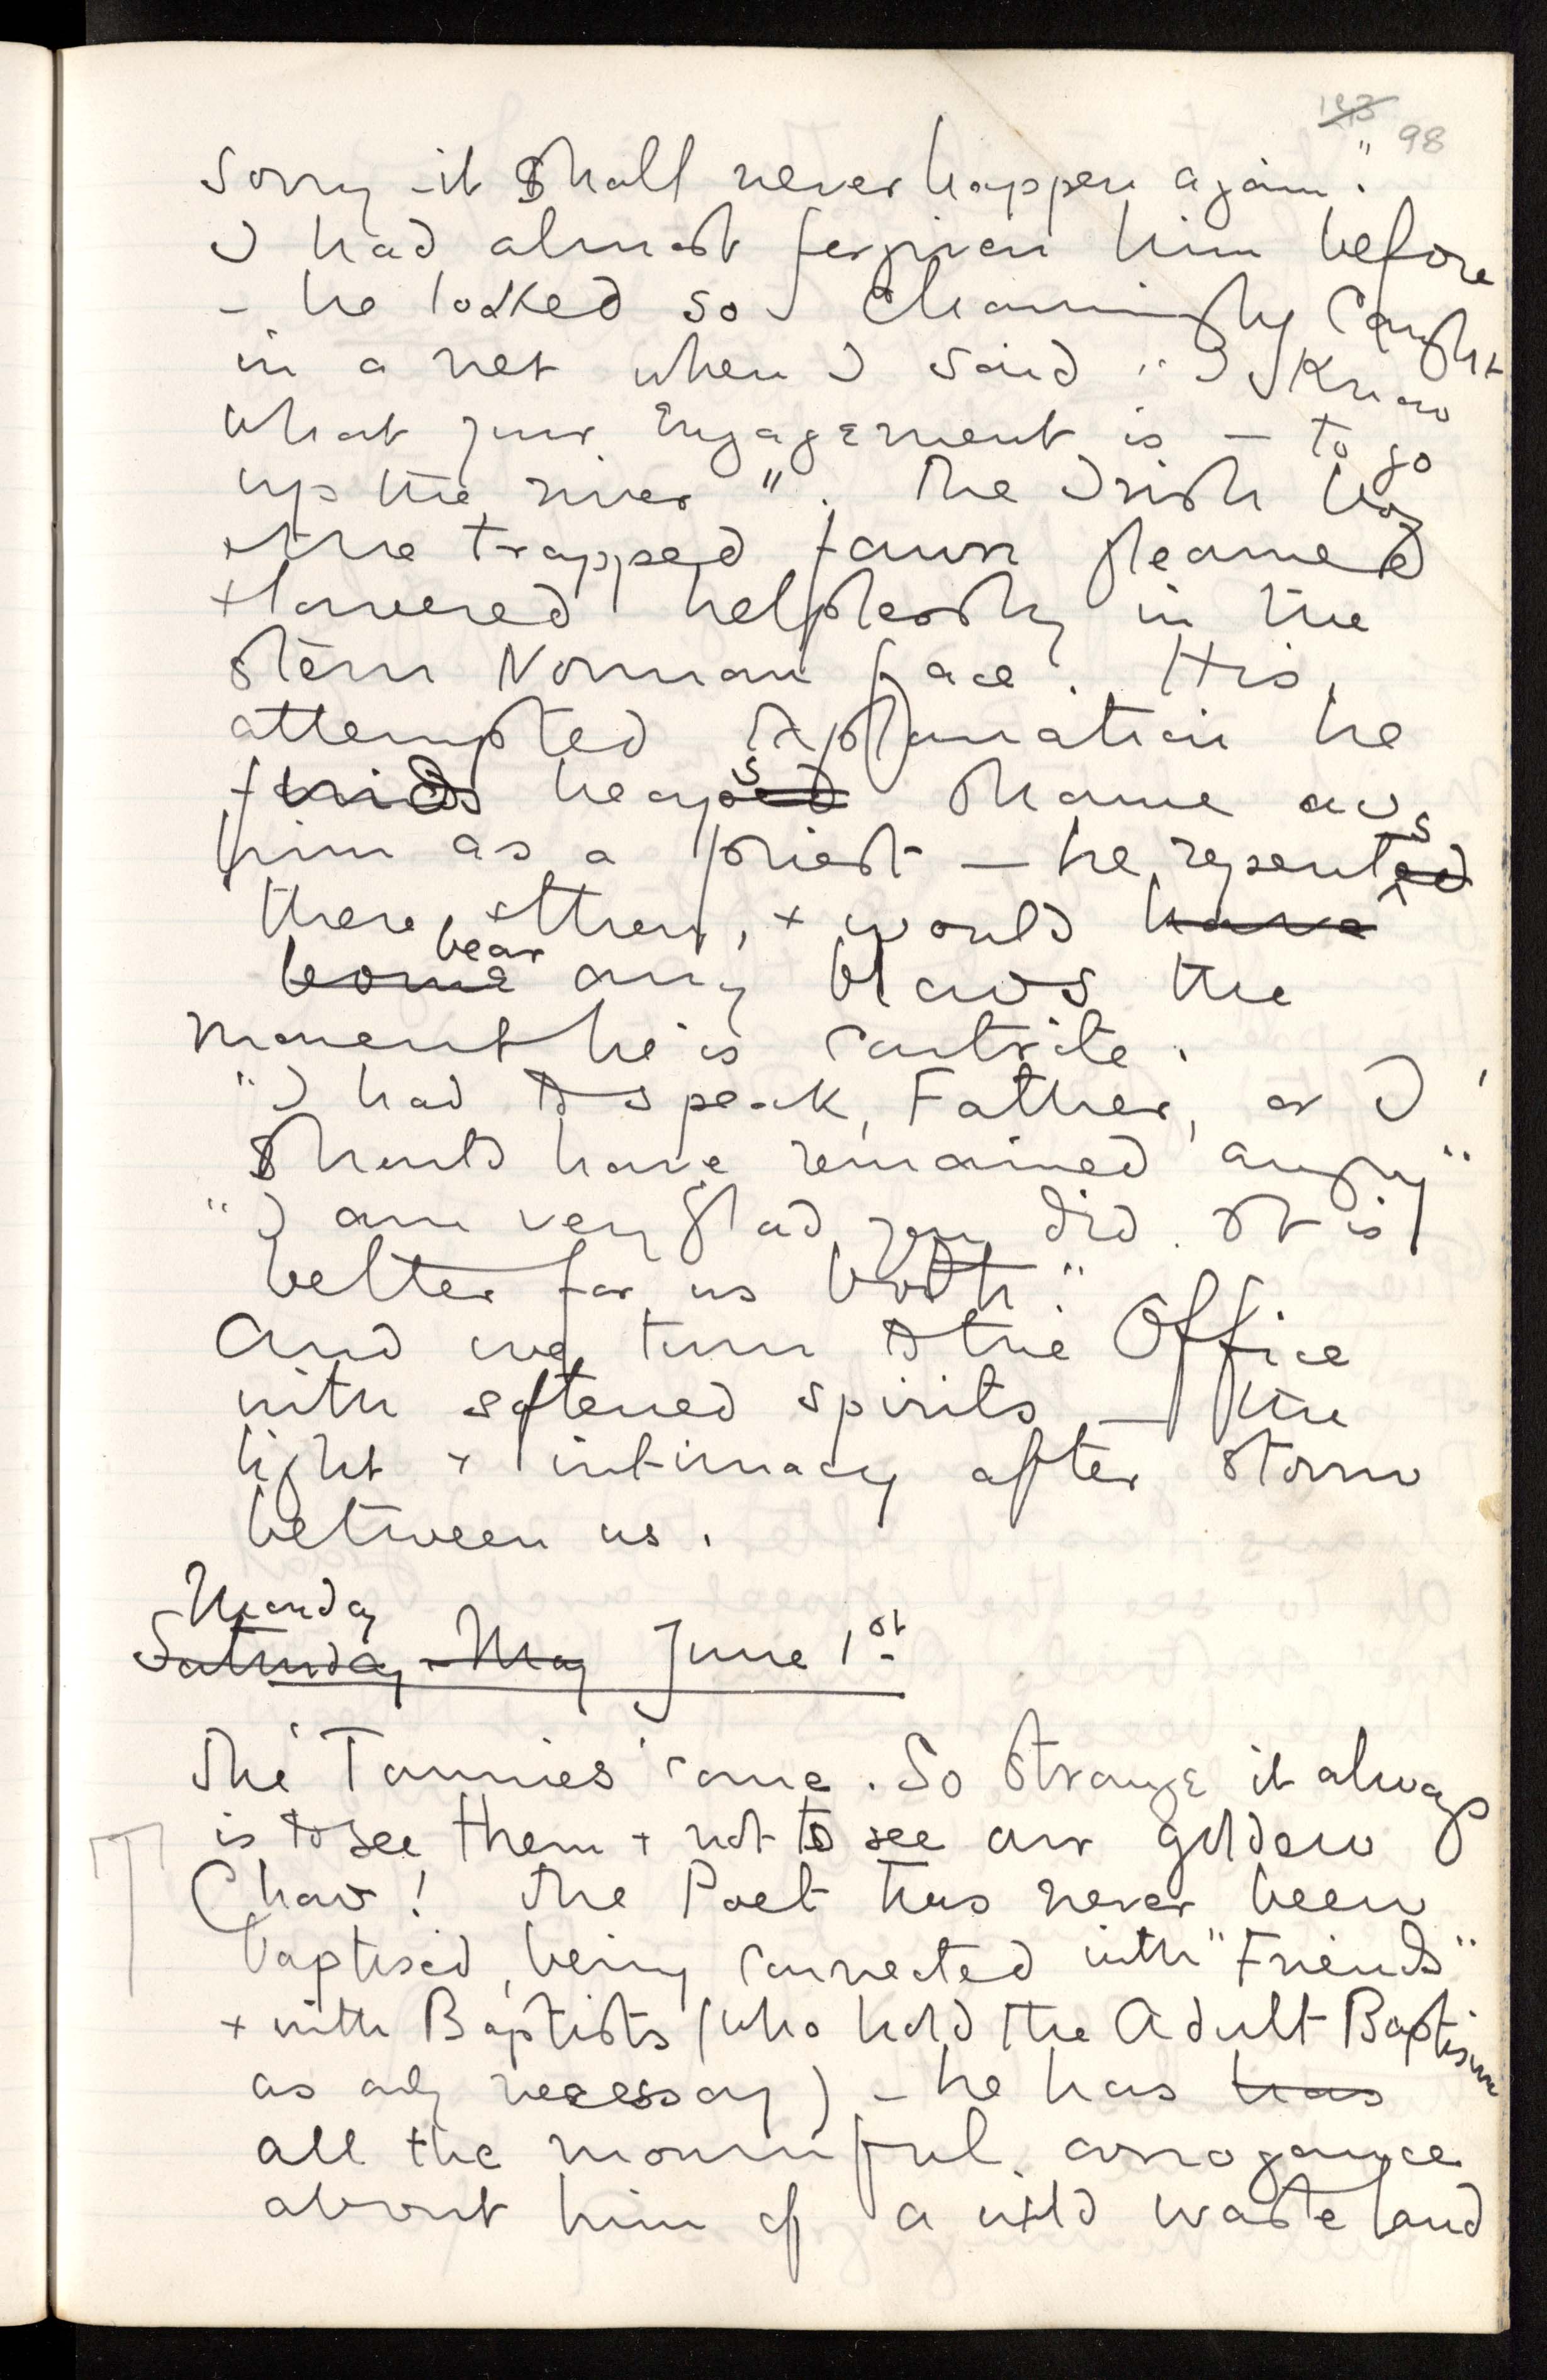 98
sorry - it shall never happen again."
I had almost forgiven him before
- he looked so charmingly caught
in a net when I said "I know
what your engagement is — to go
up the river". The Irish boy
+ the trapped faun gleamed
+ lowered helplessly in the
stern Norman face. His
attempted explanation he
finds heaps shame on
him as a priest — he repents
there + then, + would have
borne bear any blows the
moment he is contrite.
"I had to speak, Father, or I
should have remained angry"
"I am very glad you did. It is
better for us both."
And we turn to the Office
with softened spirits — the
light + intimacy after storm
between us.
Monday
Saturday May June 1st
The 'Tommies' come. So strange it always
is to see them + not to see our golden
Chow! The Poet has never been
baptised, being connected with "Friends"
+ with Baptists (who hold the Adult Baptism
as only necessary) - he has has
all the mournful arrogance
about him of a wild waste land